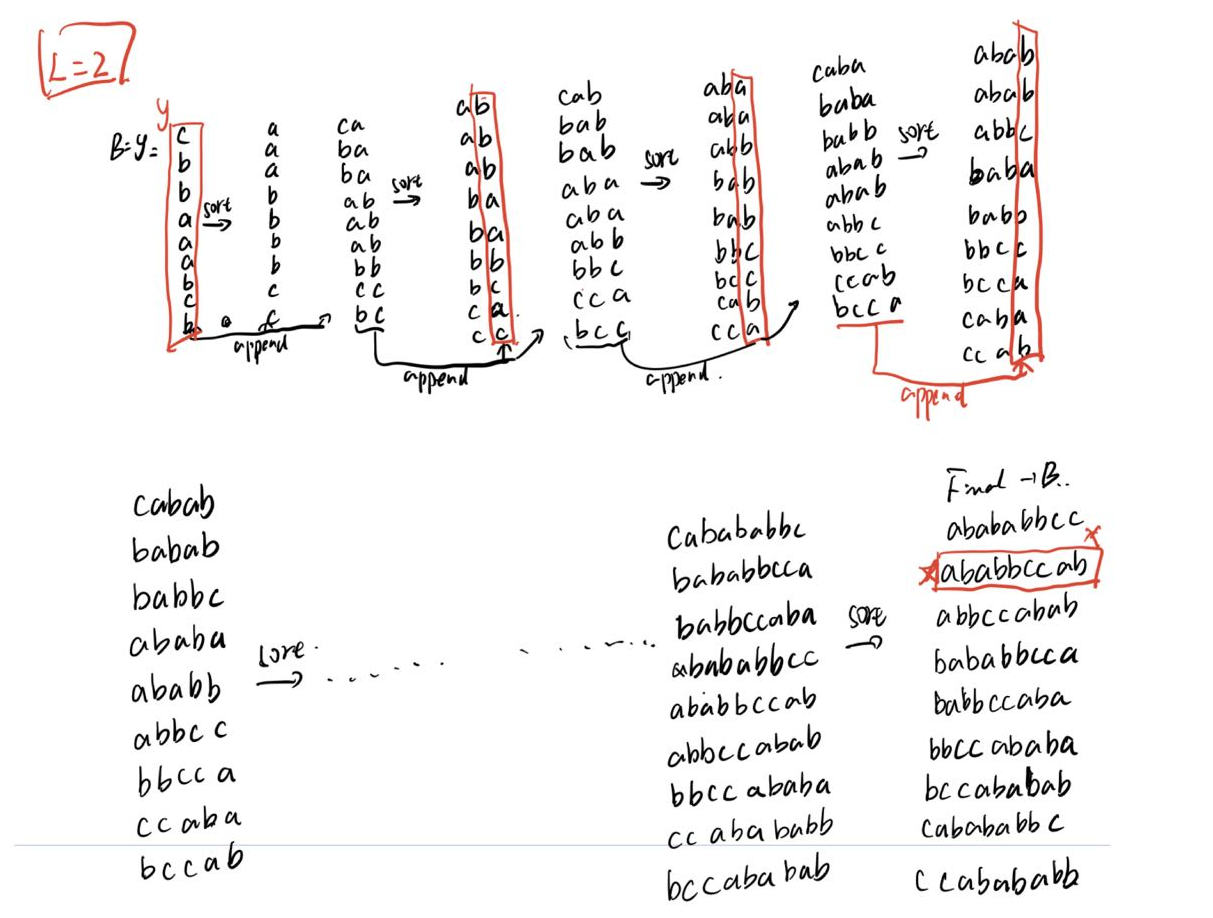 L=2
y
B=y=
c
b
b
a
a
a
b
c
b
sort →
append
a
a
a
b
b
b
b
c
c
ca
ba
ba
ab
ab
ab
bb
cc
bc
sort →
append
ab
ab
ab
ba
ba
bb
bc
ca
cc
cab
bab
bab
aba
aba
abb
bbc
cca
bcc
sort →
append.
aba
aba
abb
bab
bab
bbc
bcc
cab
cca
caba
baba
babb
abab
abab
abbc
bbcc
ccab
bcca
sort →
append
abab
abab
abbc
baba
babb
bbcc
bcca
caba
ccab
cabab
babab
babbc
ababa
ababb
abbcc
bbcca
ccaba
bccab
sort →
cabababbc
bababbcca
babbccaba
abababbcc
ababbccab
abbccabab
bbccababa
ccabababb
bccababab
sort →
Final → B..
abababbcc
ababbccab
abbccabab
bababbcca
babbccaba
bbccababa
bccababab
cabababbc
ccabababb